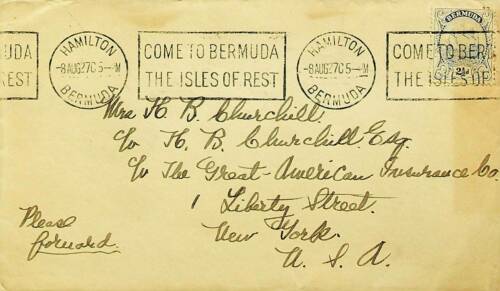 UDA
REST
HAMILTON
-8AUG27C5-M
BERMUDA
COME TO BERMUDA
THE ISLES OF REST
HAMILTON
-8AUG27C5-M
BERMUDA
COME TO BER
THE ISLES OF
BERMUDA
Mrs H. B. Churchill.
c/o H. B. Churchill Esq.
c/o The Great-American Insurance Co.
1 Liberty Street.
New York.
U. S. A.
Please
forward.